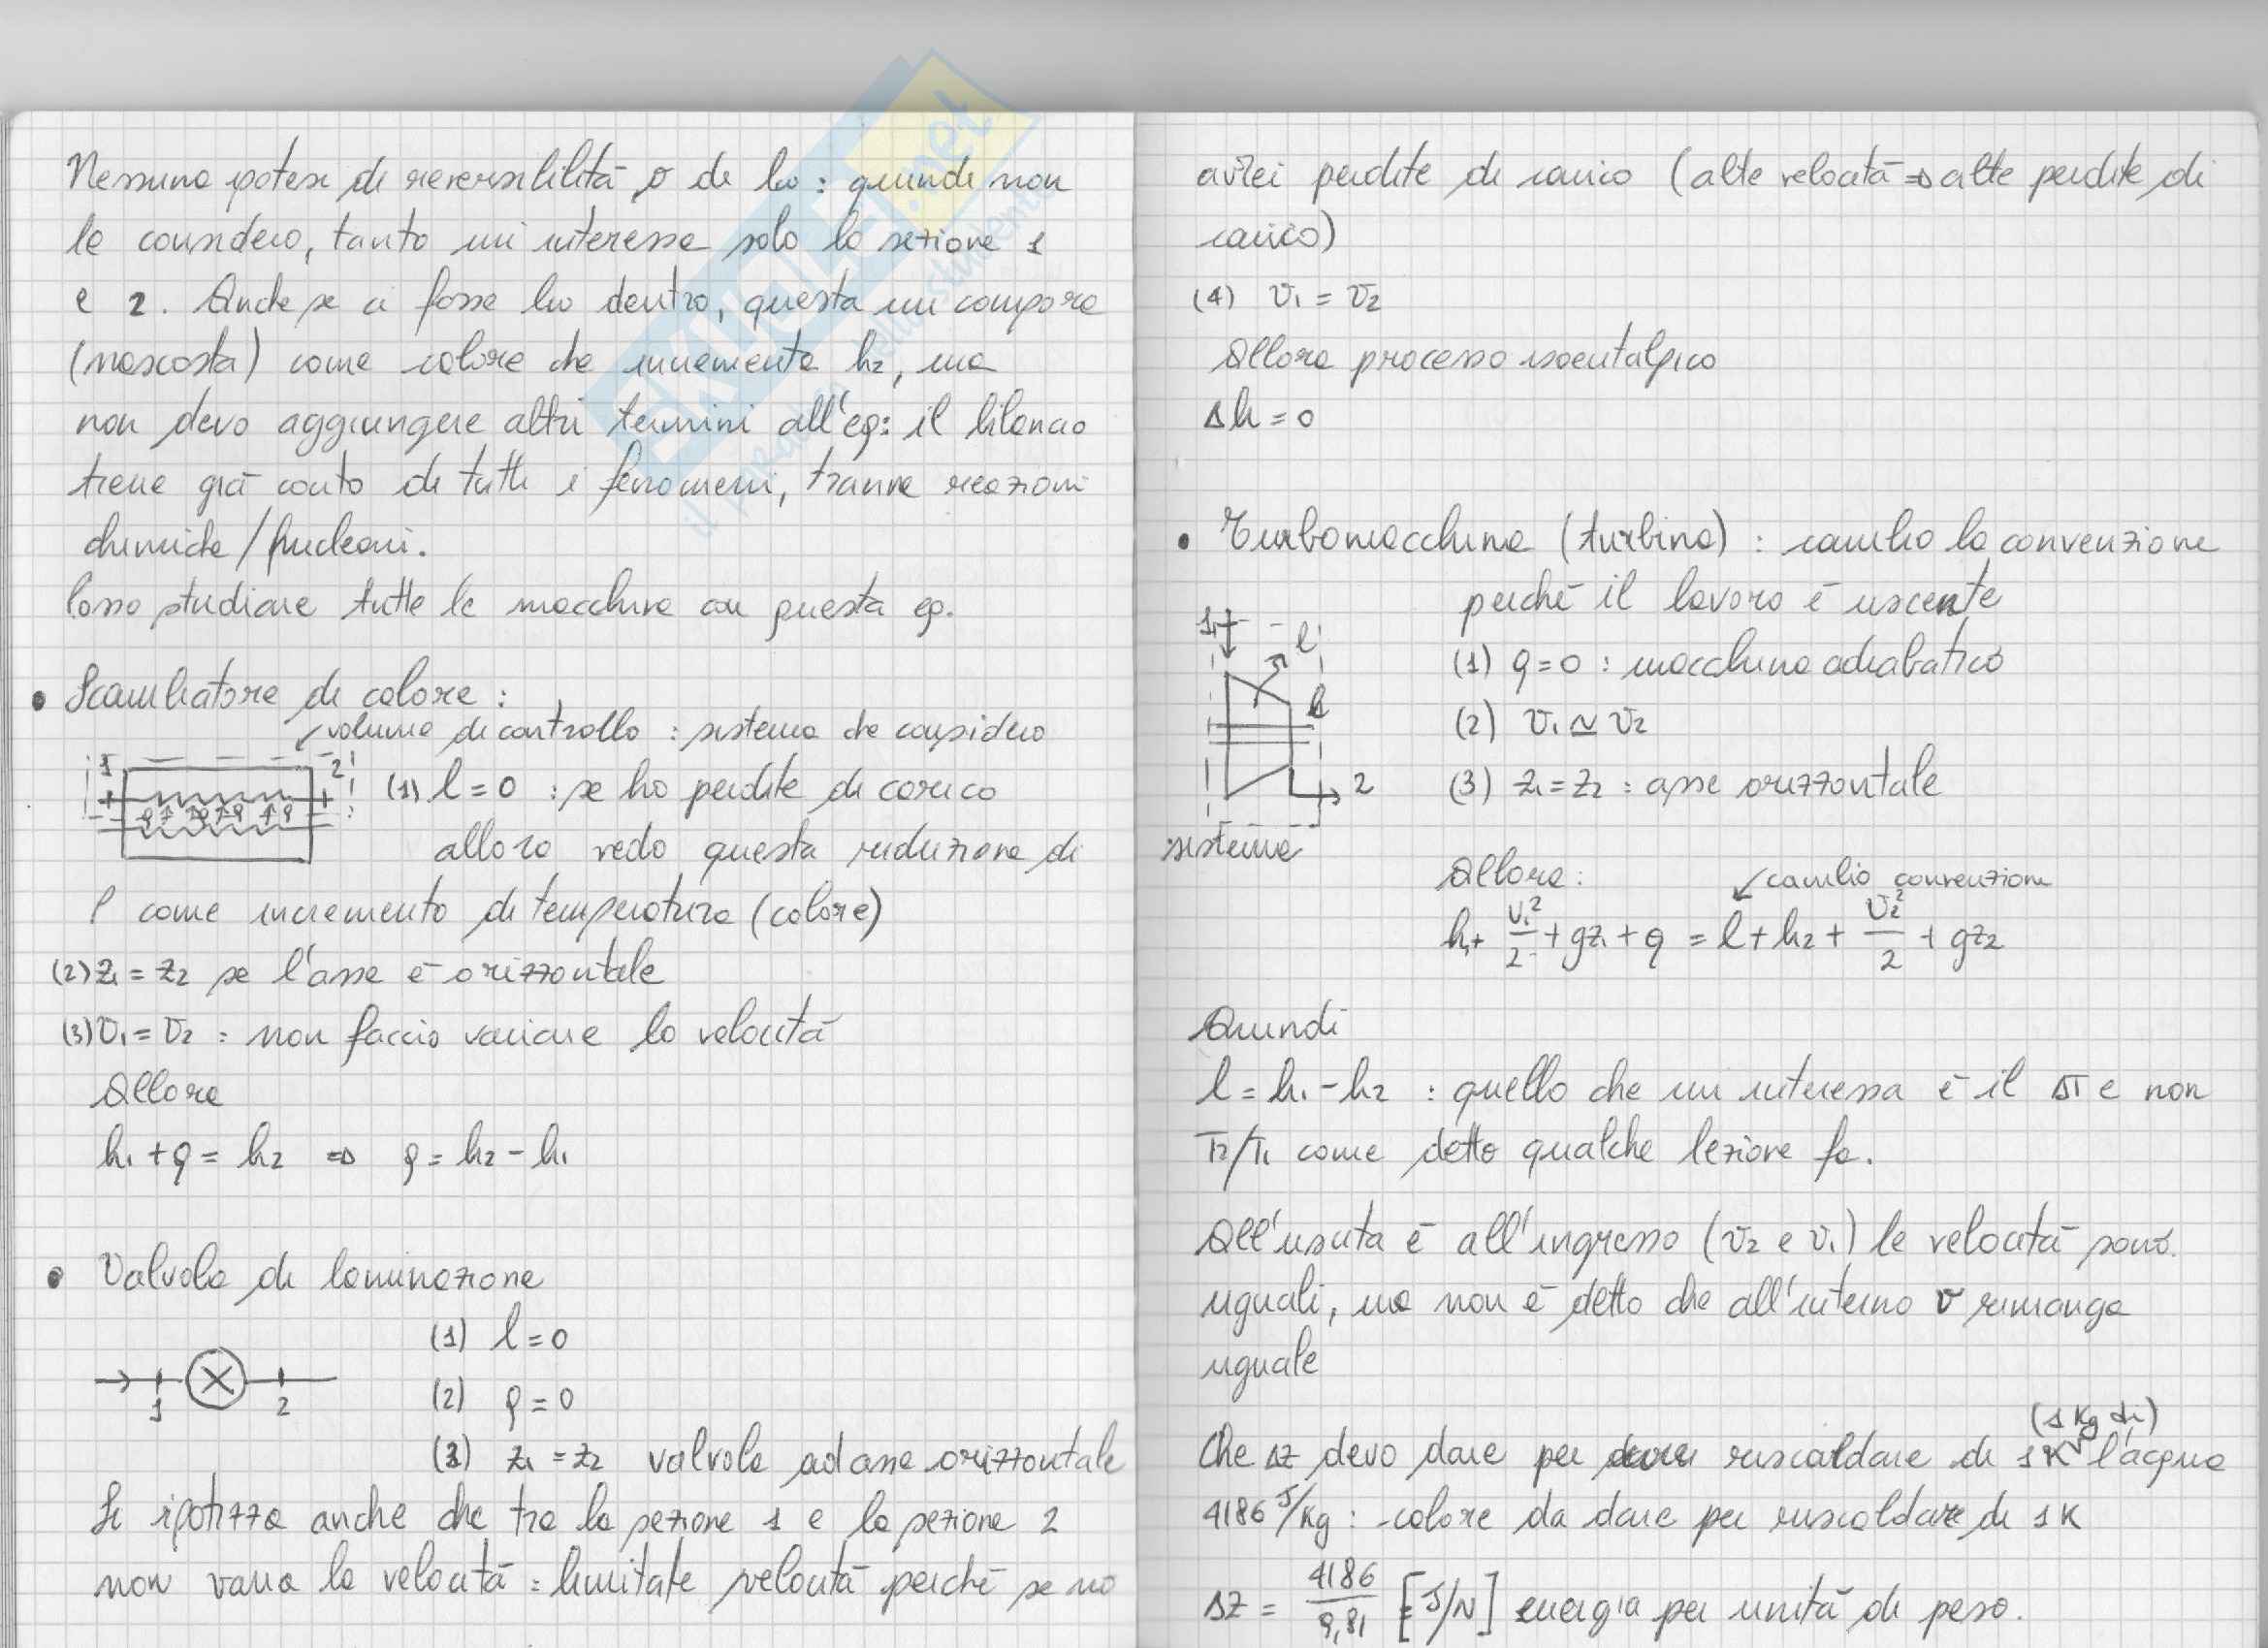 Nessuna ipotesi di reversibilità o di lw : quindi non
le considero, tanto mi interessa solo la sezione 1
e 2. Anche se ci fosse lw dentro, questa mi compare
(nascosta) come calore che incrementa h₂, ma
non devo aggiungere altri termini all'eq: il bilancio
tiene già conto di tutti i fenomeni, tranne reazioni
chimiche/nucleari.
Posso studiare tutte le macchine con questa eq.
• Scambiatore di calore :
↙ volume di controllo : sistema che considero
1 2
(1) l = 0 : se ho perdite di carico
q q q q
allora vedo questa riduzione di
P come incremento di temperatura (calore)
(2) z₁ = z₂ se l'asse è orizzontale
(3) v₁ = v₂ : non faccio variare la velocità
Allora
h₁ + q = h₂ ⇒ q = h₂ - h₁
• Valvola di laminazione
(1) l = 0
1 2
(2) q = 0
(3) z₁ = z₂ valvola ad asse orizzontale
Si ipotizza anche che tra la sezione 1 e la sezione 2
non varia la velocità : limitate velocità perché se no
avrei perdite di carico (alte velocità ⇒ alte perdite di
carico)
(4) v₁ = v₂
Allora processo isoentalpico
Δh = 0
• Turbomacchina (turbina) : cambio la convenzione
perché il lavoro è uscente
1 l
(1) q = 0 : macchina adiabatica
(2) v₁ ≃ v₂
(3) z₁ = z₂ : asse orizzontale
2
sistema
Allora:
↙ cambio convenzione
h₁ + v₁²/2 + gz₁ + q = l + h₂ + v₂²/2 + gz₂
Quindi
l = h₁ - h₂ : quello che mi interessa è il ΔT e non
T₂/T₁ come detto qualche lezione fa.
All'uscita e all'ingresso (v₂ e v₁) le velocità sono
uguali, ma non è detto che all'interno v rimanga
uguale
(1 Kg di)
Che Δz devo dare per riscaldare di 1K l'acqua
4186 J/Kg : calore da dare per riscaldare di 1K
Δz = 4186/9,81 [J/N] energia per unità di peso.